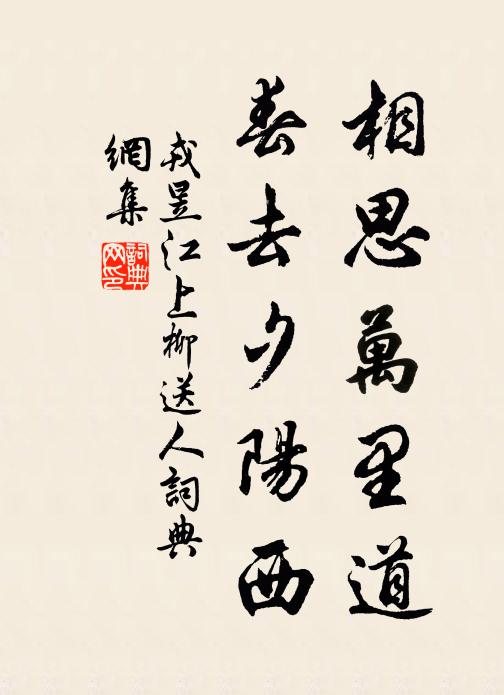 相思萬里道
春去夕陽西
戎昱江上柳送人詞典
網集
詞典
网印